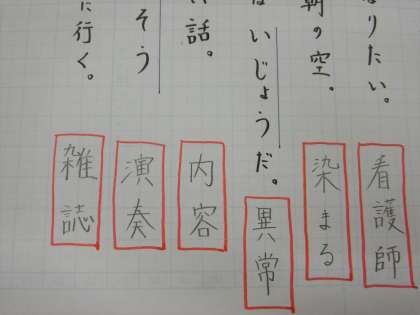 なりたい。
看護師
朝の空。
染まる
はいじょうだ。
異常
い話。
内容
そう
演奏
に行く。
雑誌